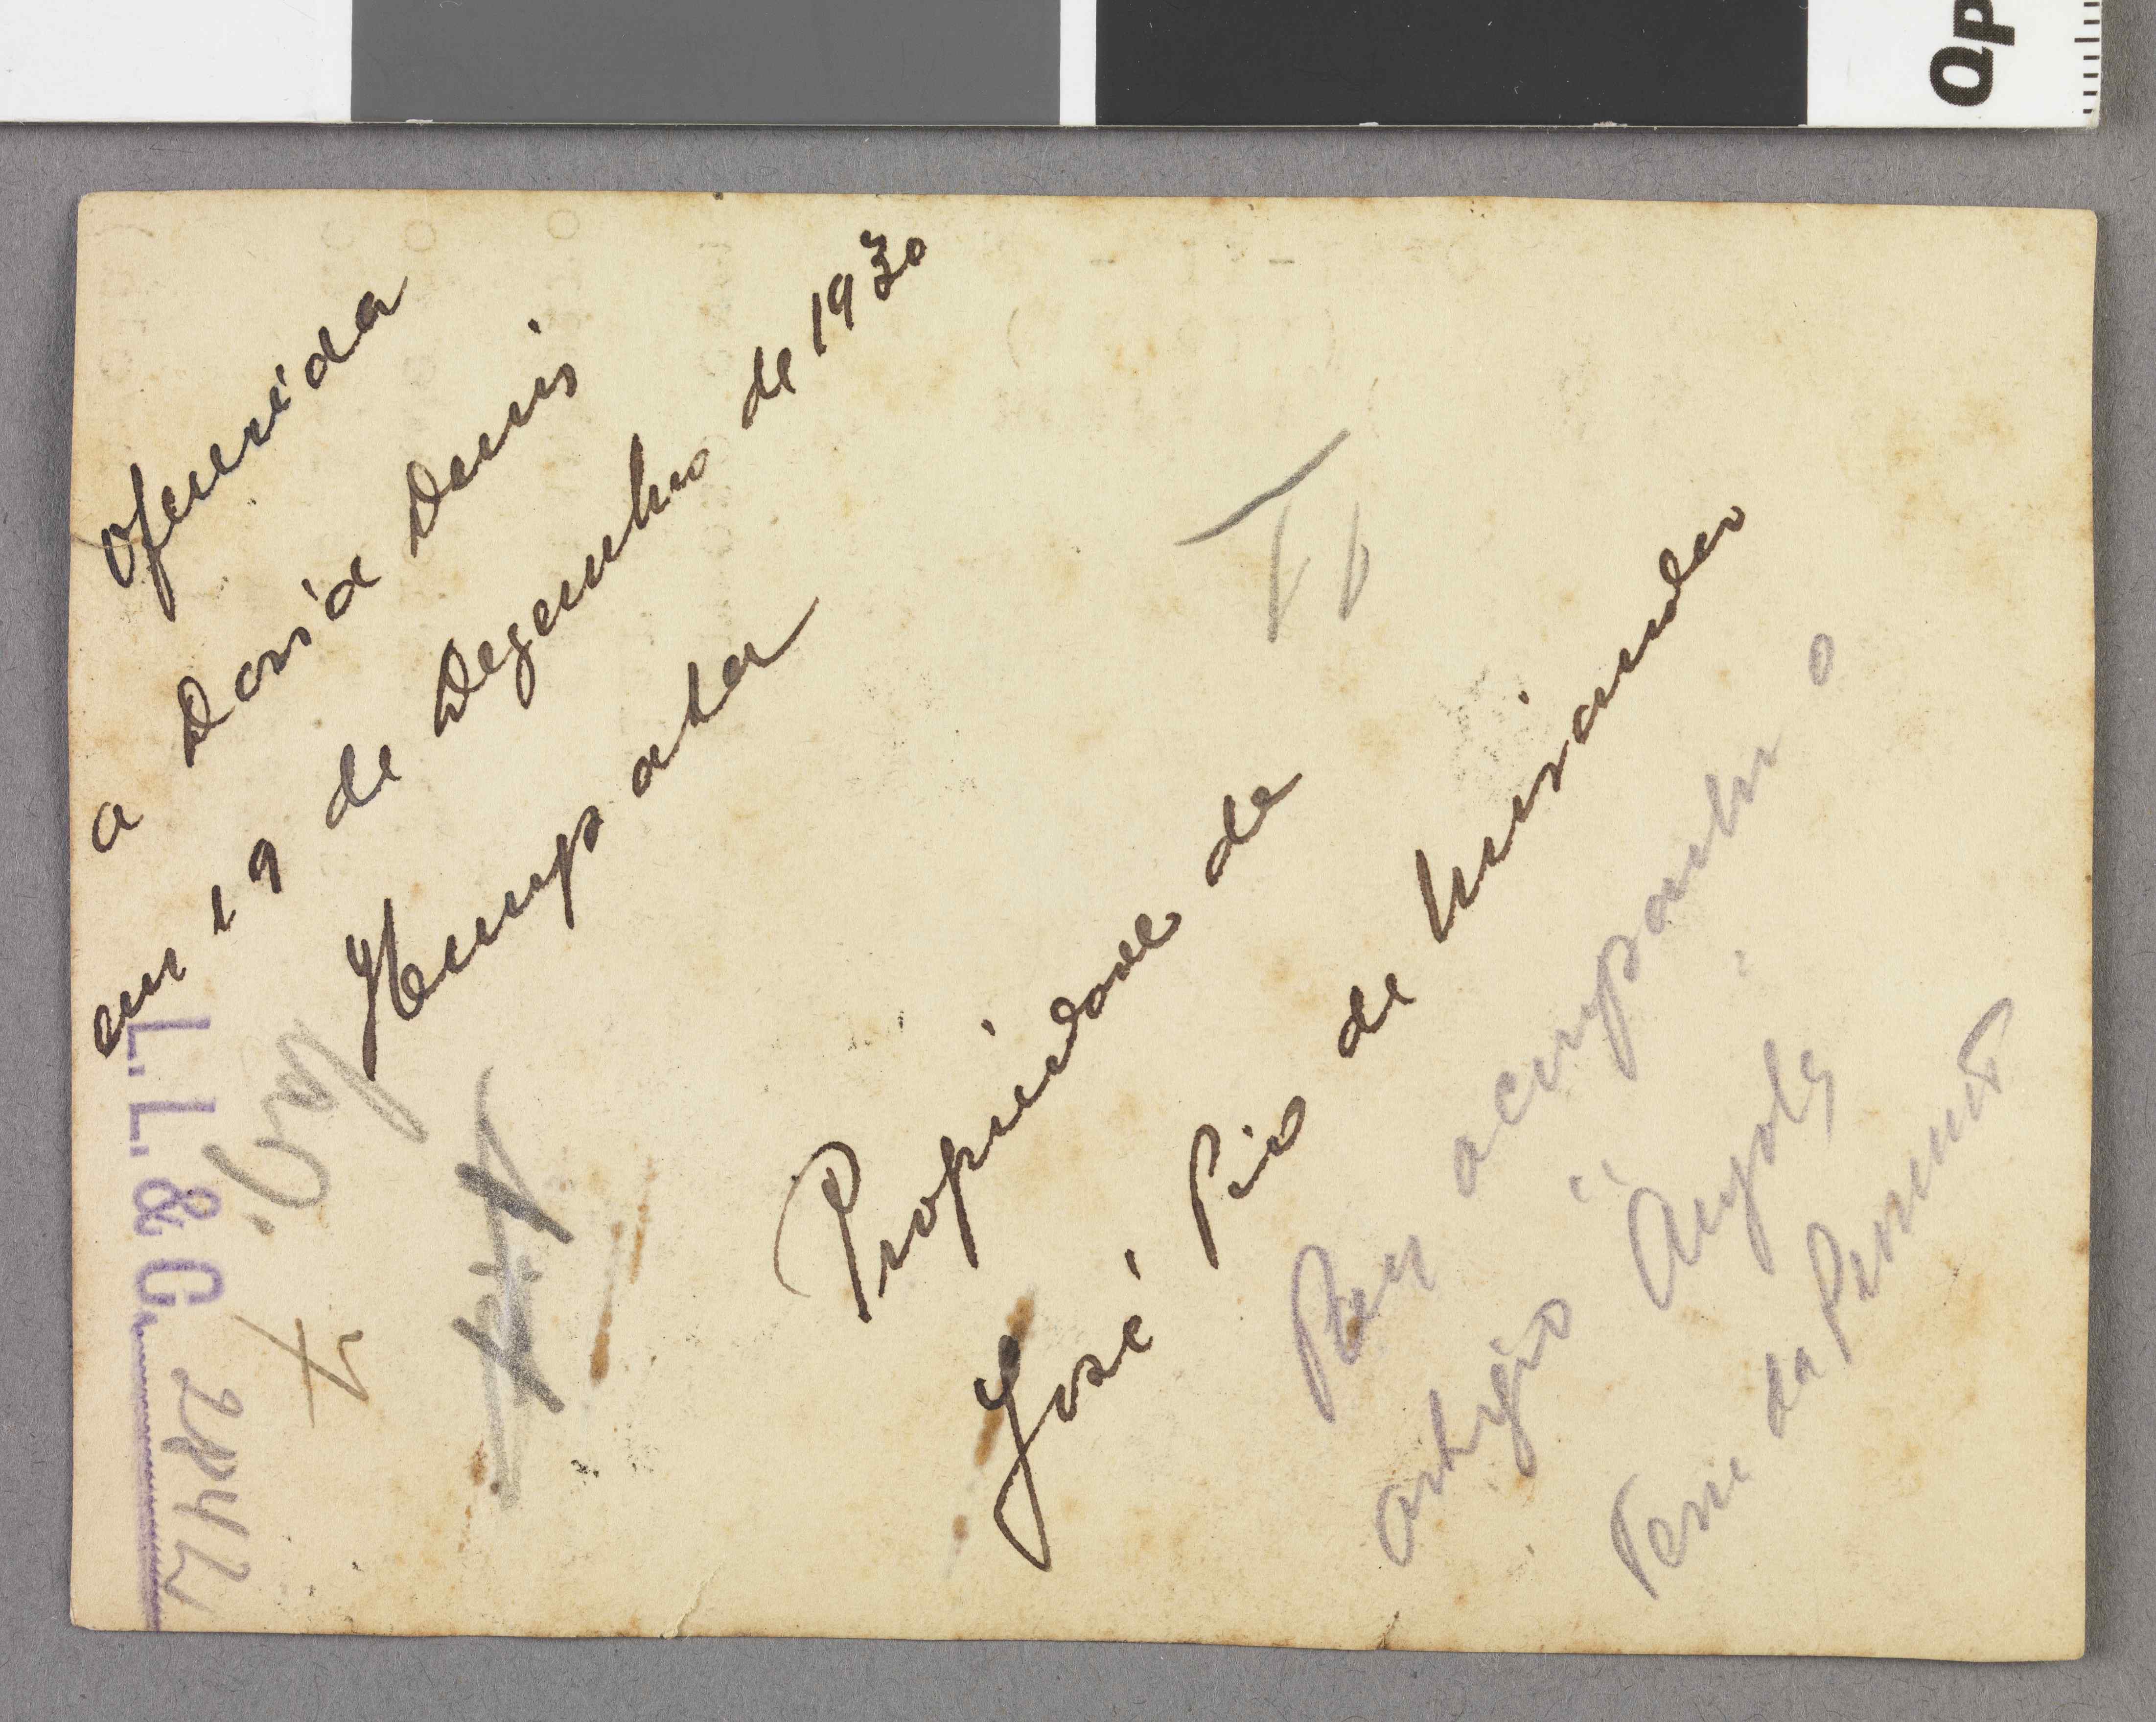 Oferecida
a Doria Denis
em 19 de Dezembro de 1930
Humpata
Propriedade de
José Pio de Miranda
Para acompanhar o
artigo "Angola
Terra da Promissão
II
L. L. & C. 2842
7
QP